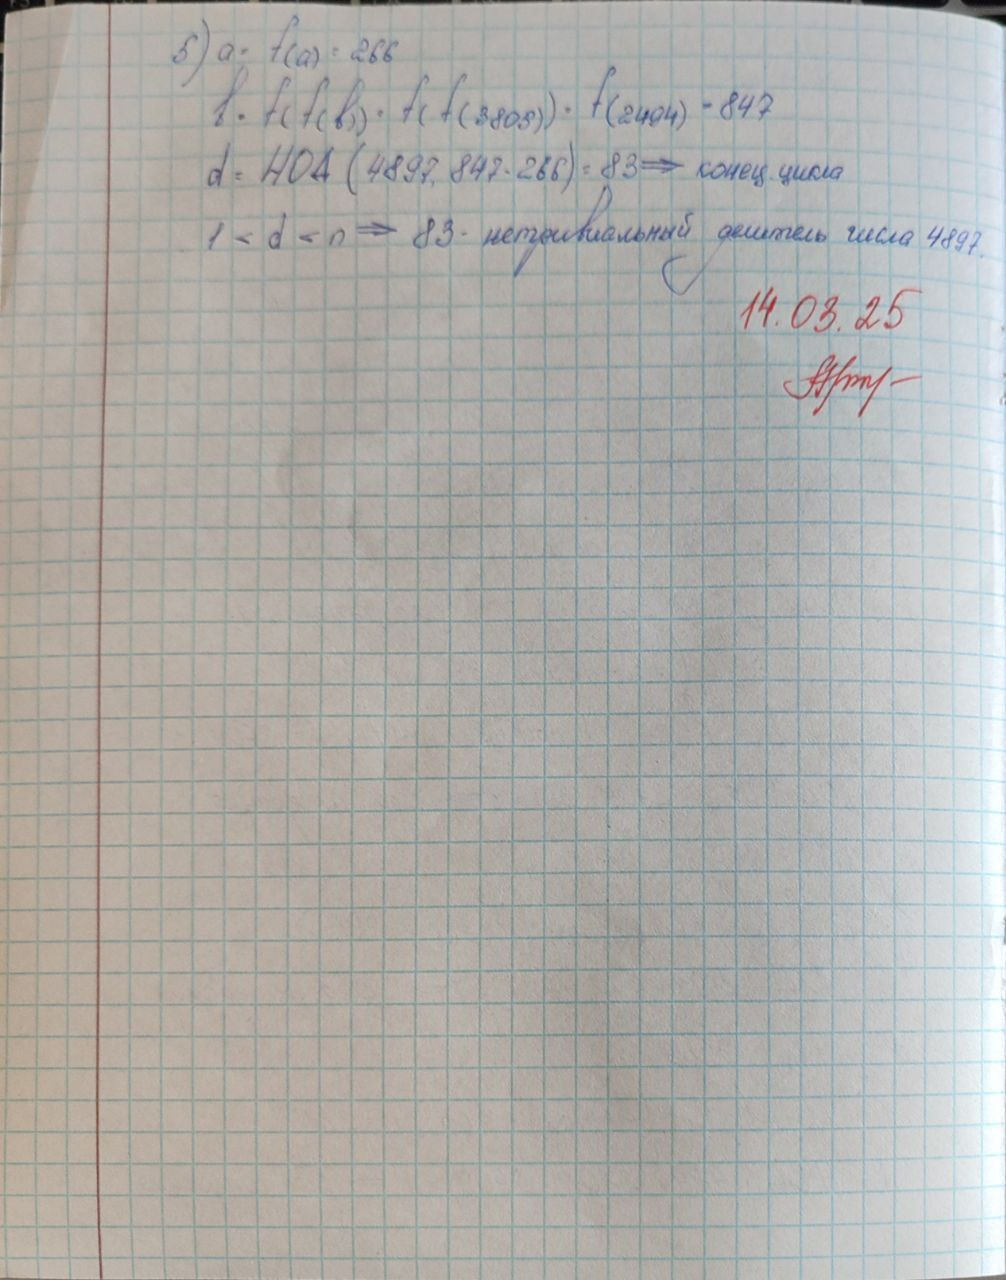 5) a = f(a) = 266
b = f(f(b)) = f(f(3803)) = f(2494) = 847
d = НОД (4897, 847-266) = 83 ⇒ конец цикла
1 < d < n ⇒ 83 - нетривиальный делитель числа 4897.
14.03.25